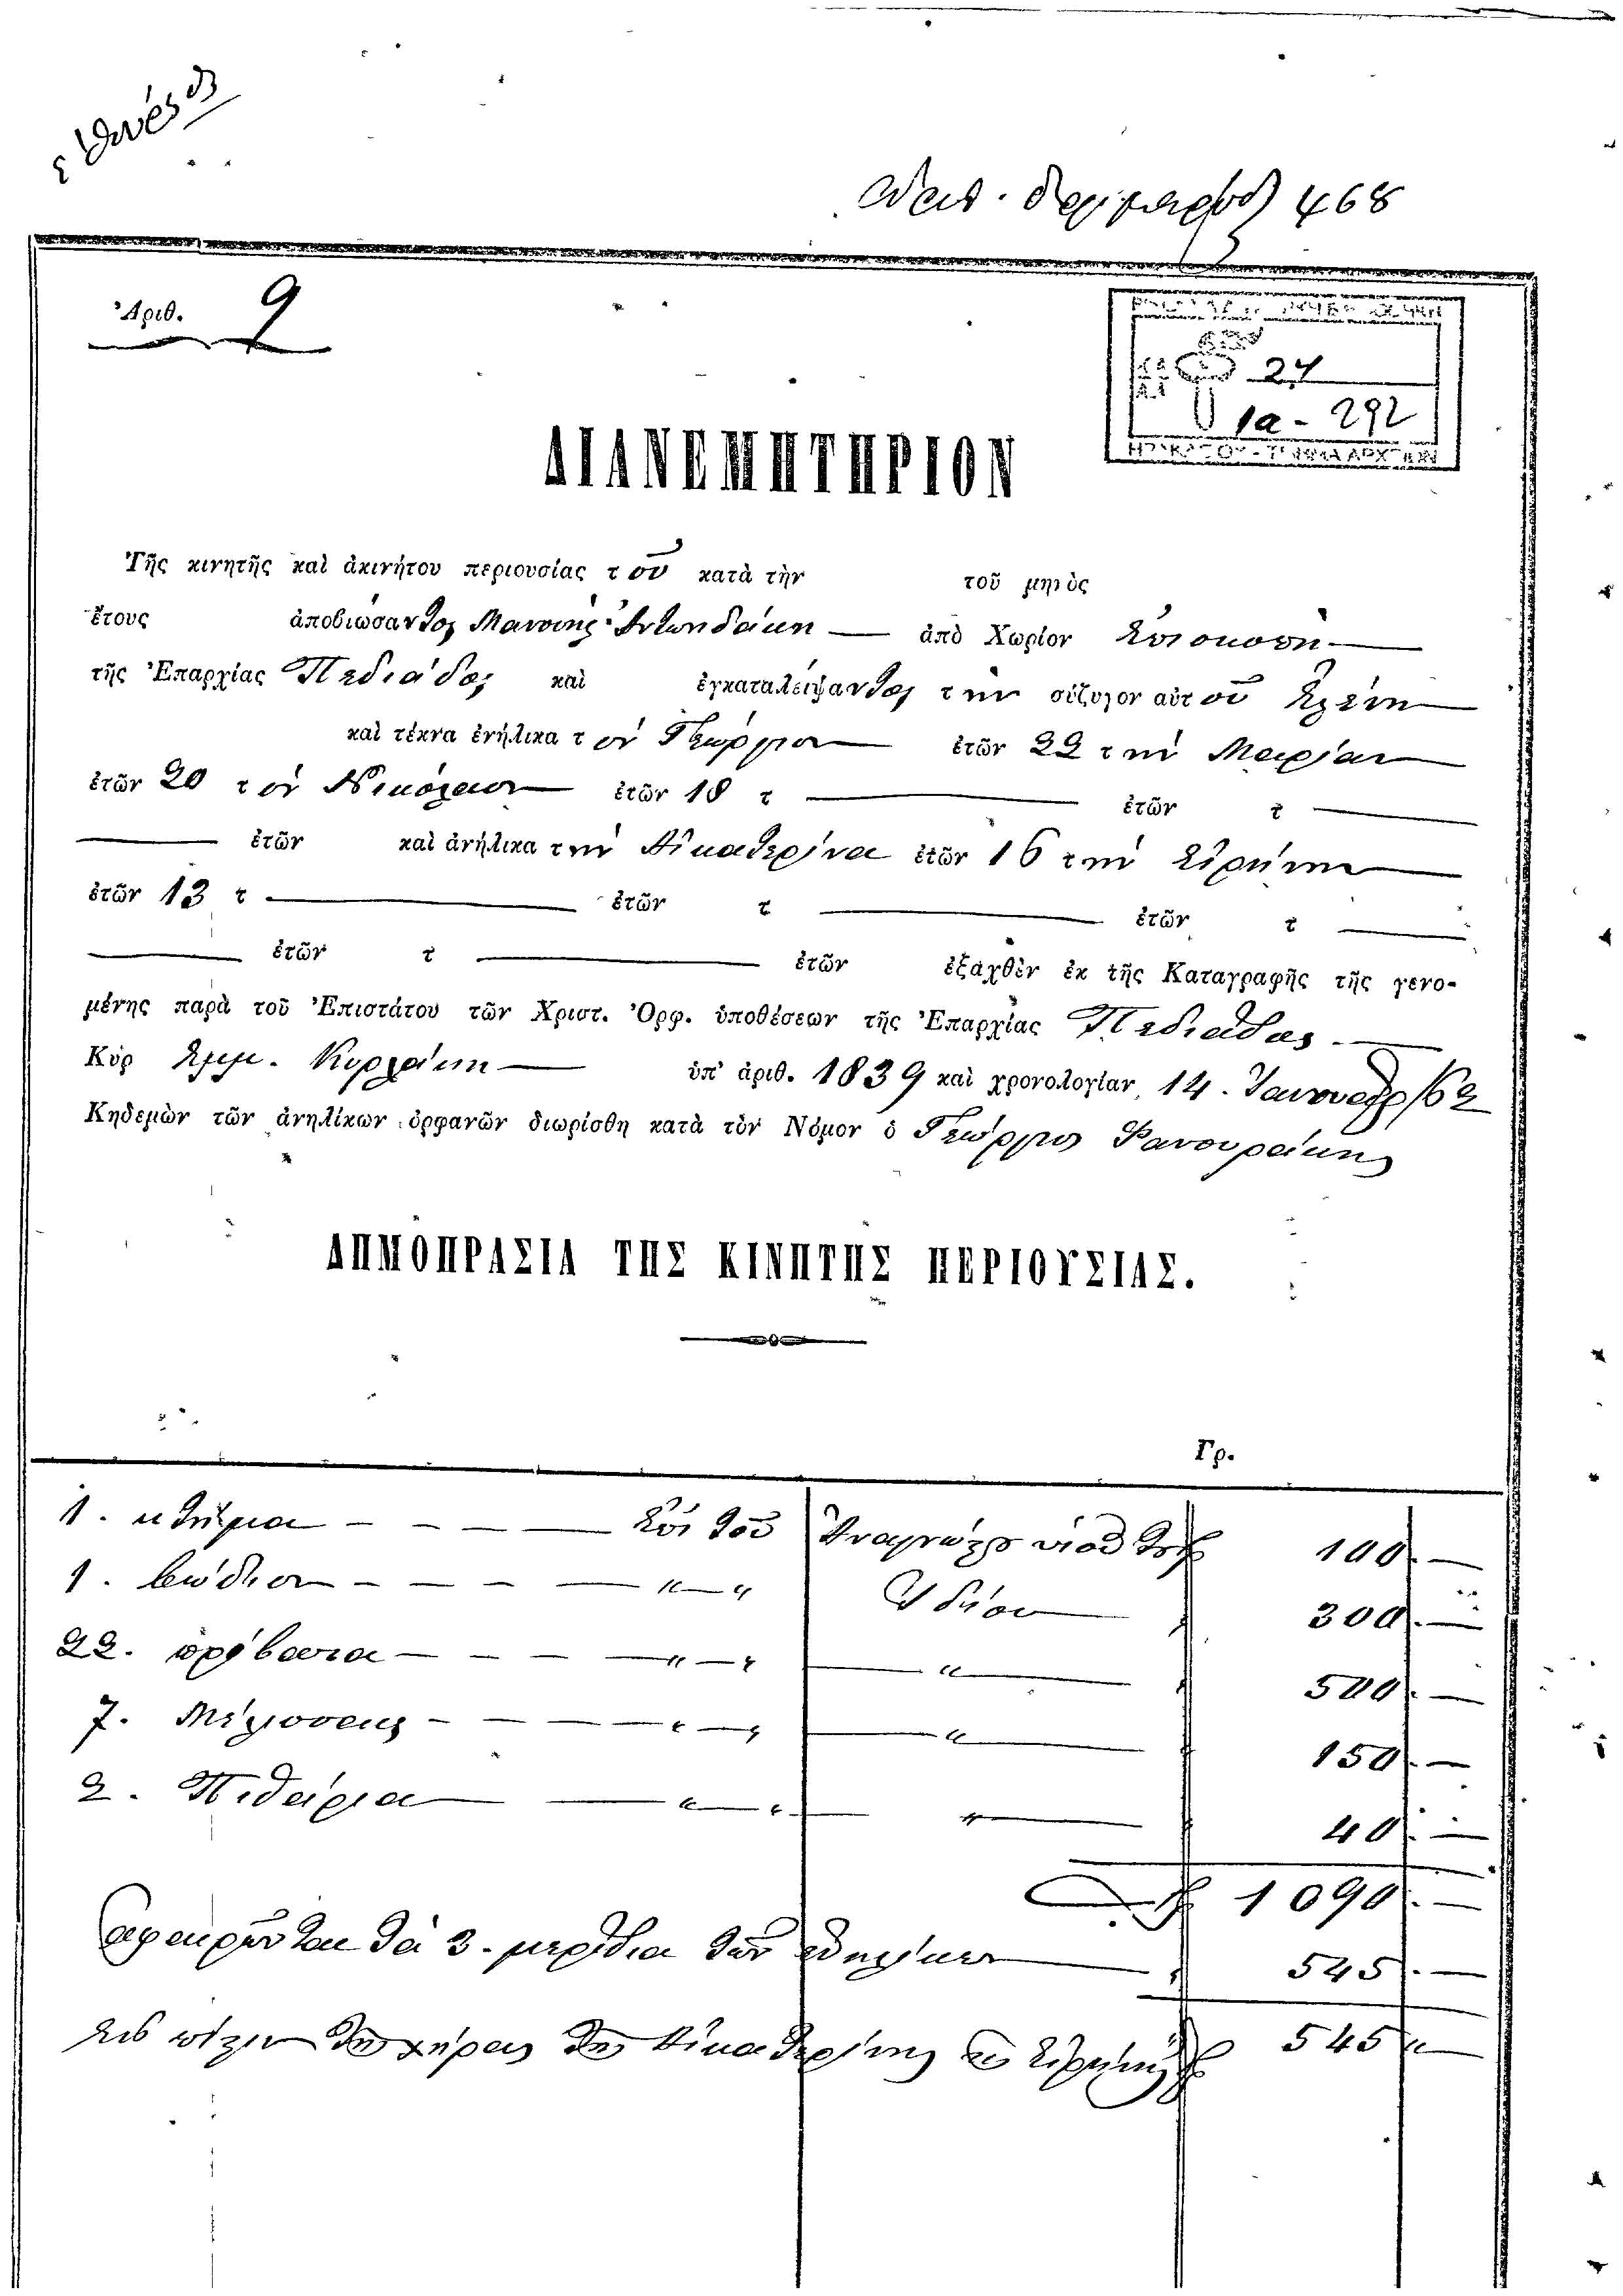 468
Ἀριθ. 9
24
1α - 292
ΔΙΑΝΕΜΗΤΗΡΙΟΝ
Τῆς κινητῆς καὶ ἀκινήτου περιουσίας τοῦ κατὰ τὴν τοῦ μηνὸς
ἔτους ἀποβιώσαντος Μανουὴλ Ἀντωνιδάκη — ἀπὸ Χωρίον Ἐπισκοπὴ —
τῆς Ἐπαρχίας Πεδιάδος καὶ ἐγκαταλείψαντος τὴν σύζυγον αὐτοῦ Ἑλένη —
καὶ τέκνα ἐνήλικα τὸν Γεώργιον — ἐτῶν 22 τὴν Μαρίαν —
ἐτῶν 20 τὸν Νικόλαον — ἐτῶν 18 τ — ἐτῶν τ —
— ἐτῶν καὶ ἀνήλικα τὴν Αἰκατερίνα ἐτῶν 16 τὴν Εἰρήνην —
ἐτῶν 13 τ — ἐτῶν τ — ἐτῶν τ —
— ἐτῶν τ — ἐτῶν ἐξαχθὲν ἐκ τῆς Καταγραφῆς τῆς γενο-
μένης παρὰ τοῦ Ἐπιστάτου τῶν Χριστ. Ὀρφ. ὑποθέσεων τῆς Ἐπαρχίας Πεδιάδος —
Κὺρ Ἐμμ. — ὑπ' ἀριθ. 1839 καὶ χρονολογίαν 14 Ἰανουαρ/62
Κηδεμὼν τῶν ἀνηλίκων ὀρφανῶν διωρίσθη κατὰ τὸν Νόμον ὁ Γεώργιος Φανουράκης
ΔΗΜΟΠΡΑΣΙΑ ΤΗΣ ΚΙΝΗΤΗΣ ΠΕΡΙΟΥΣΙΑΣ.
Γρ.
1. κτῆμα - - - — ἐπὶ τοῦ υἱοῦ του 100 —
1. βώδιον - - - — " — " Ἰδίου — 300 —
22. πρόβατα - - - — " — " — " — 500 —
7. Μέλισσες - - - — " — " — " — 150 —
2. Πιθάρια — — " — " — " — 40 —
1090 —
ἀφαιροῦνται τὰ 3. μερίδια τῶν ἐνηλίκων — 545 —
τῆς χήρας τῆς Αἰκατερίνης καὶ Εἰρήνης 545 —